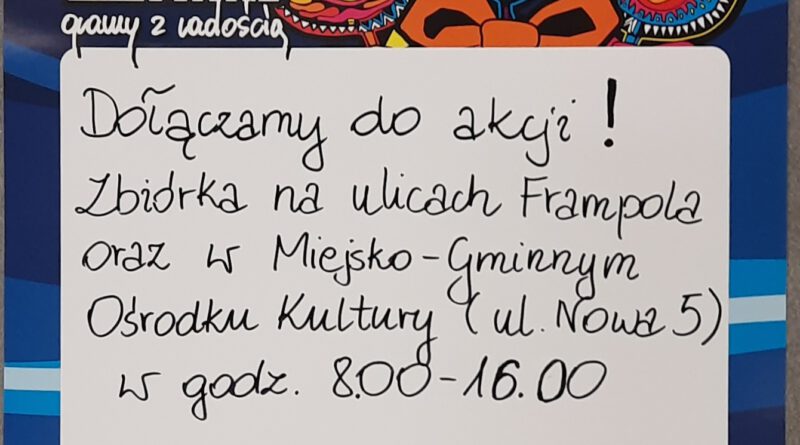 gramy z radością
Dołączamy do akcji!
Zbiórka na ulicach Frampola
oraz w Miejsko-Gminnym
Ośrodku Kultury (ul. Nowa 5)
w godz. 8.00-16.00